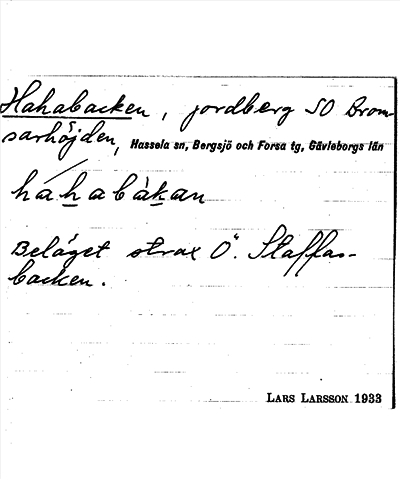 Hahabacken, jordberg SO Brom-
sarhöjden, Hassela sn, Bergsjö och Forsa tg, Gävleborgs län
háhabàkan
Beläget strax Ö. Staffas-
backen.
LARS LARSSON 1933